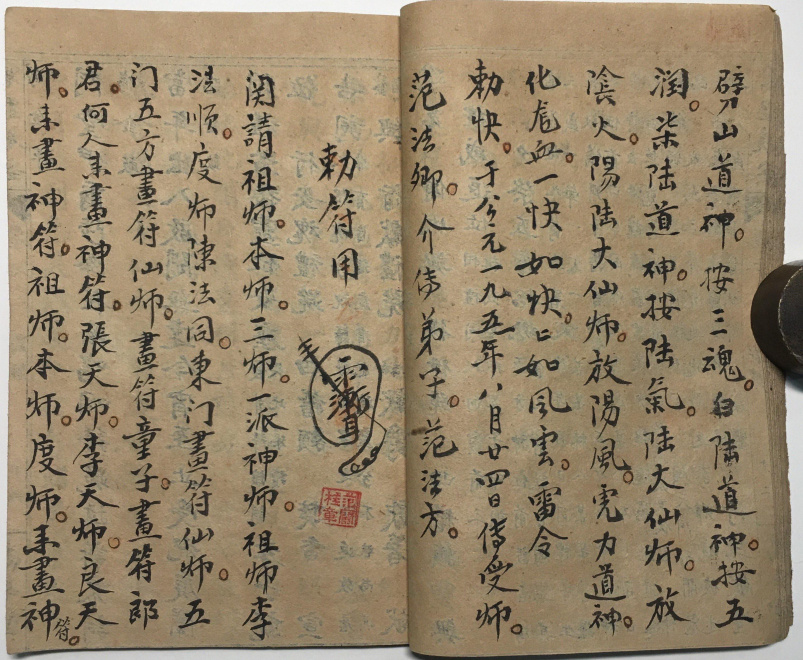 劈山道神。按三魂。白陆道神按五
润。柒陆道神。按陆氣。陆大仙师。放
陰火陽陆大仙师。放陽風。虎力道神。
化血。一快如快。上如風雲。雷令
勅快于公元一九五一年八月廿四日傳受师。
范法卿。介傳弟子。范法方。
勅符用
関請祖师。本师。三师。一派神师。祖师李
法順。度师陳法回。東门畫符仙师。五
门五方畫符仙师。畫符童子。畫符郎
君。何人来畫神符。張天师。李天师。良天
师。来畫神符。祖师。本师。度师。来畫神符。